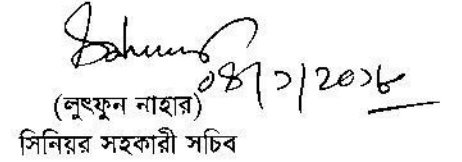 ০৪/১/২০১৮
(লুৎফুন নাহার)
সিনিয়র সহকারী সচিব